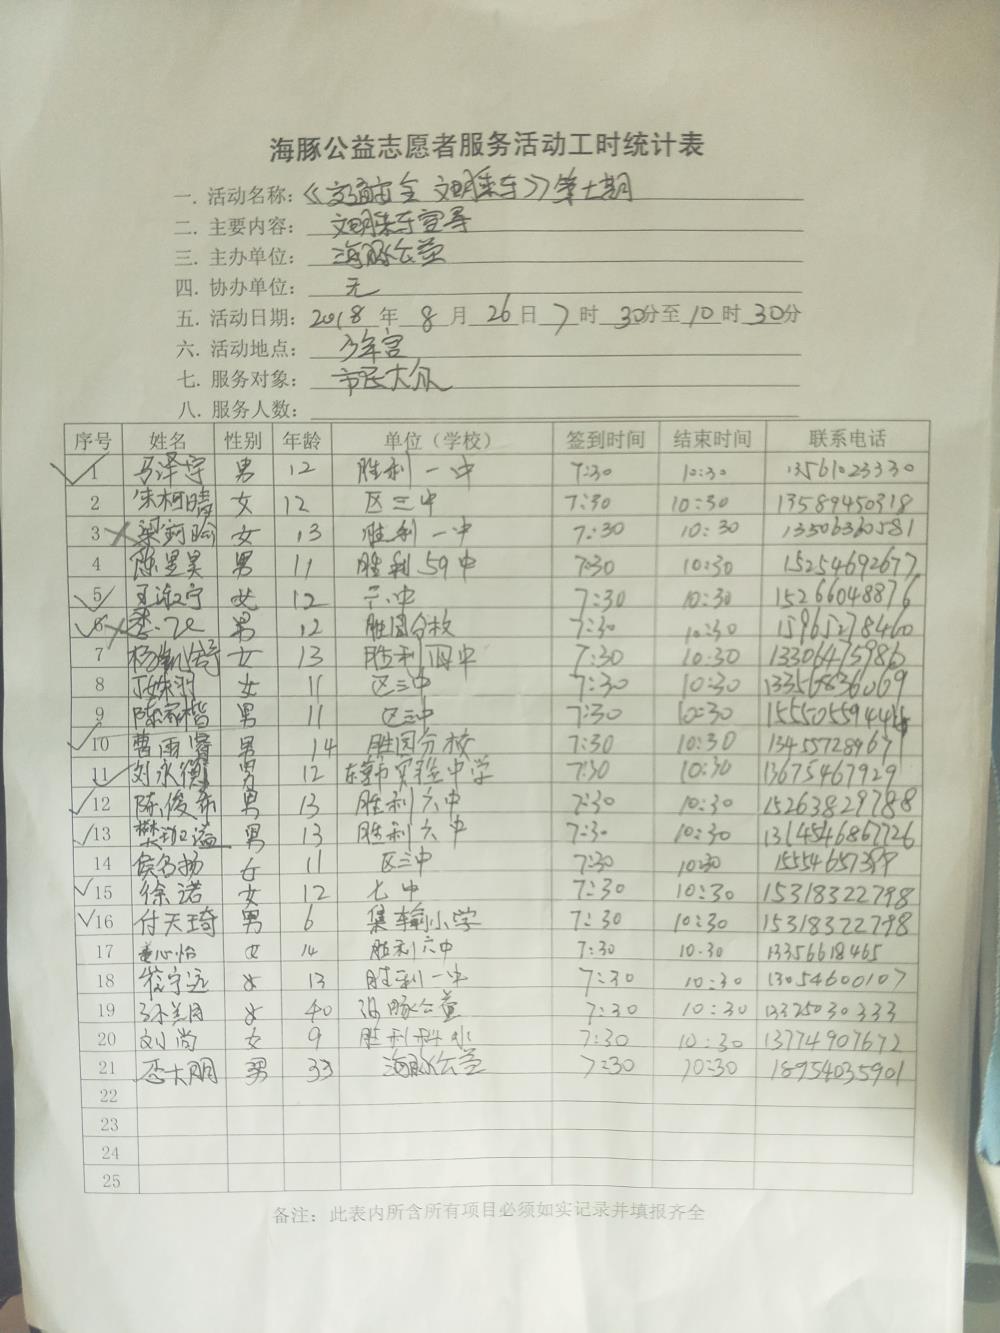 海豚公益志愿者服务活动工时统计表
一. 活动名称: 《交通安全 文明乘车》第七期
二. 主要内容: 文明乘车宣导
三. 主办单位: 海豚公益
四. 协办单位: 无
五. 活动日期: 2018 年 8 月 26 日 7 时 30分至 10 时 30分
六. 活动地点: 少年宫
七. 服务对象: 市民大众
八. 服务人数:
序号 姓名 性别 年龄 单位（学校） 签到时间 结束时间 联系电话
1 马泽宇 男 12 胜利一中 7:30 10:30 13561023330
2 朱柯晴 女 12 区三中 7:30 10:30 13589450318
3 梁 女 13 胜利一中 7:30 10:30 13506360581
4 陈昱昊 男 11 胜利59中 7:30 10:30 15254692677
5 王 宁 女 12 六中 7:30 10:30 15266048876
6 男 12 胜园分校 7:30 10:30 15965278460
7 杨 女 13 胜利四中 7:30 10:30 13306475986
8 女 11 区三中 7:30 10:30 13356836069
9 陈家楷 男 11 区三中 7:30 10:30
10 曹雨 男 14 胜园分校 7:30 10:30 13455728967
11 刘永衡 男 12 东营市实验中学 7:30 10:30 13675467929
12 陈俊 男 13 胜利六中 7:30 10:30 15263829788
13 樊 男 13 胜利六中 7:30 10:30
14 侯名扬 女 11 区三中 7:30 10:30
15 徐诺 女 12 七中 7:30 10:30 15318322798
16 付天琦 男 6 集输小学 7:30 10:30 15318322798
17 姜心怡 女 14 胜利六中 7:30 10:30 13356618465
18 宁远 女 13 胜利一中 7:30 10:30 13054600107
19 孙美 女 40 海豚公益 7:30 10:30 13325030333
20 刘尚 女 9 胜利 7:30 10:30 13774907672
21 大朋 男 33 海豚公益 7:30 10:30 18954035901
22
23
24
25
备注: 此表内所含所有项目必须如实记录并填报齐全